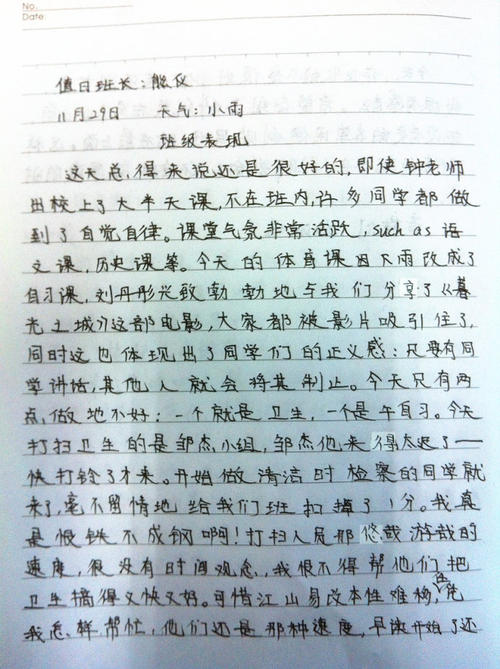 No.
Date.
值日班长：熊仪
11月29日 天气：小雨
班级表现
这天总得来说还是很好的，即使钟老师
出校上了大半天课，不在班内，许多同学都做
到了自觉自律。课堂气氛非常活跃，such as 语
文课，历史课等。今天的体育课因下雨改成了
自习课，刘丹彤兴致勃勃地与我们分享了《暮
光之城》这部电影，大家都被影片吸引住了，
同时这也体现出了同学们的正义感：只要有同
学讲话，其他人就会将其制止。今天只有两
点，做地不好：一个就是卫生，一个是午自习。今天
打扫卫生的是邹杰小组，邹杰他来得太迟了——
快打铃了才来。开始做清洁时检察的同学就
来了，毫不留情地给我们班扣掉了1分。我真
是恨铁不成钢啊！打扫人员那悠哉游哉的
速度，很没有时间观念，我恨不得帮他们把
卫生搞得又快又好。可惜江山易改本性难移，
我怎样帮忙，他们还是那种速度，早读开始了还